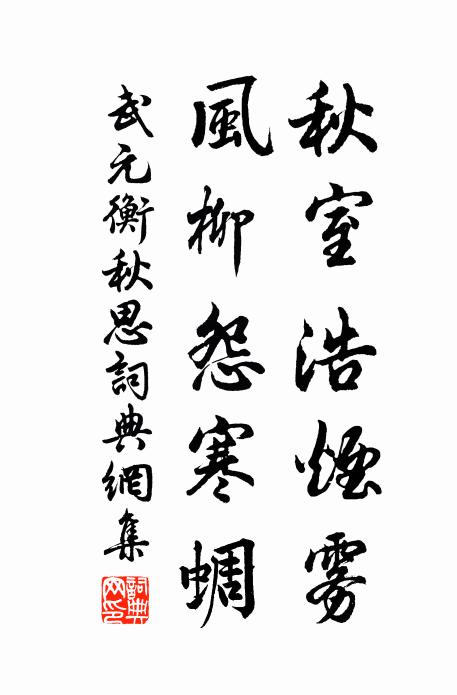 秋室浩煙雾
風柳怨寒蜩
武元衡秋思詞典網集
詞典网印